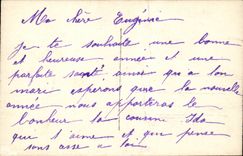 Ma chère Eugénie
je te souhaite une bonne
et heureuse année et une
parfaite santé ainsi que a ton
mari esperons que la nouvelle
année nous apportera
le bonheur ta cousine Ida
que t'aime et qui pense
a toi